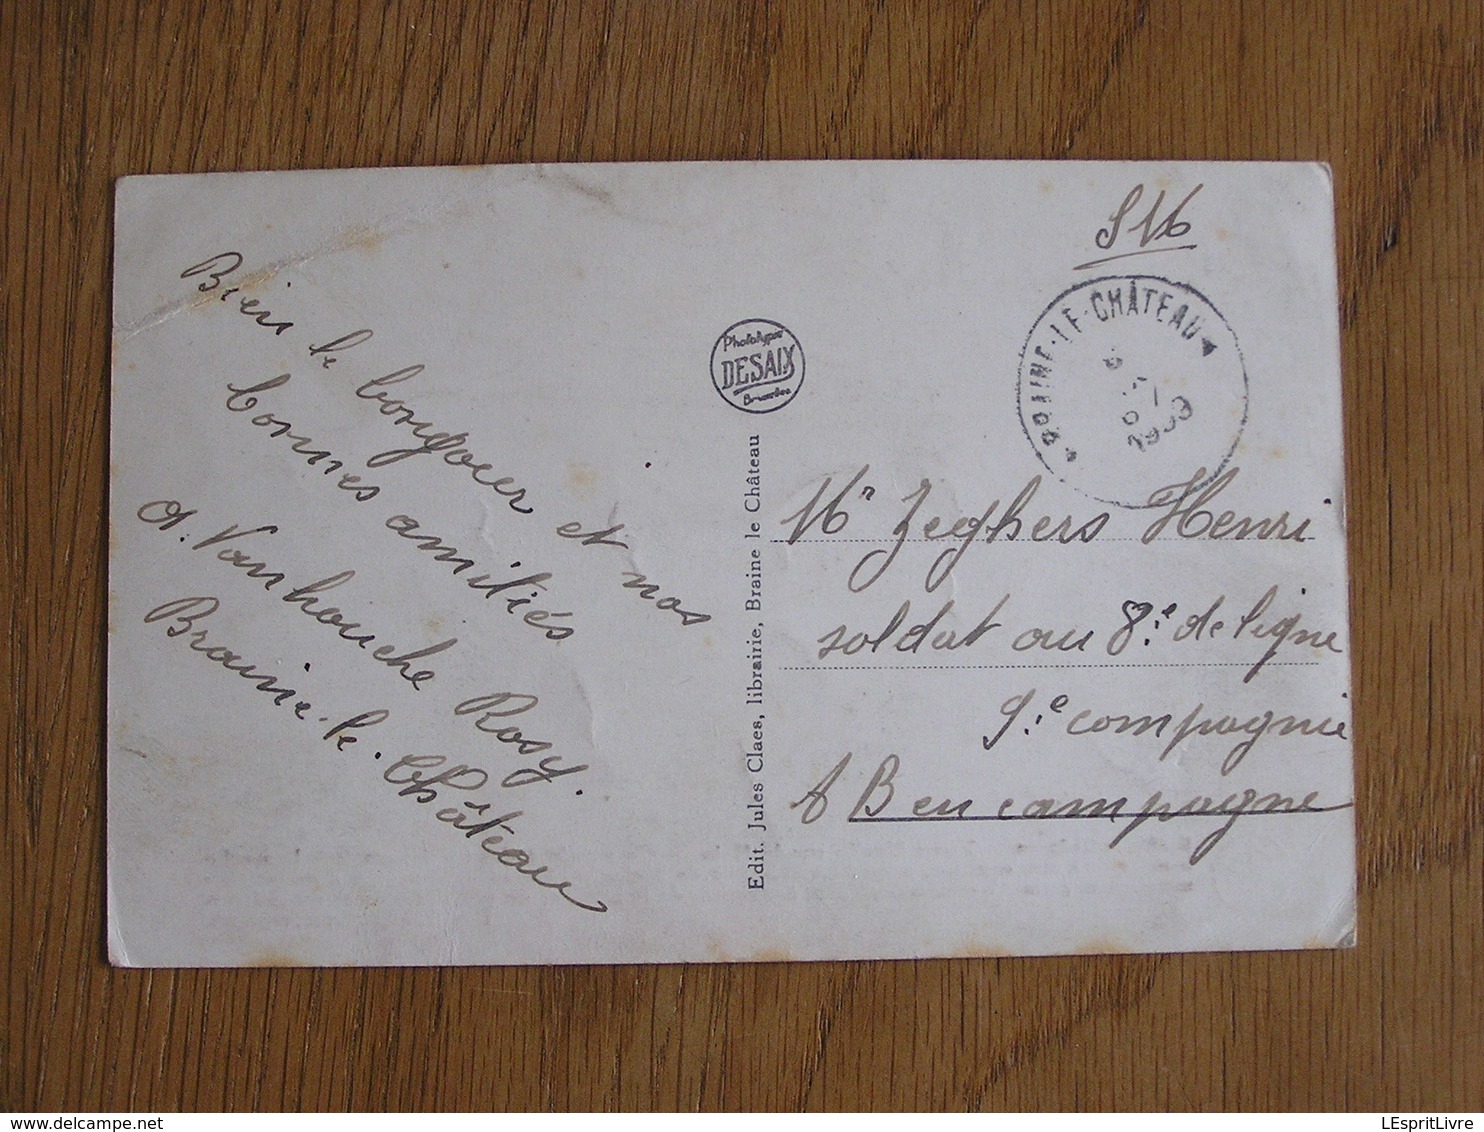 Bien le bonjour et nos
bonnes amitiés
A. Vanhouche Rosy.
Braine-le-Château
Phototypie
DESAIX
Bruxelles
Edit. Jules Claes, librairie, Braine le Château
SM
BRAINE-LE-CHÂTEAU
Mr Zeghers Henri
soldat au 8:e de ligne
9:e compagnie
A B en campagne
LEspritLivre